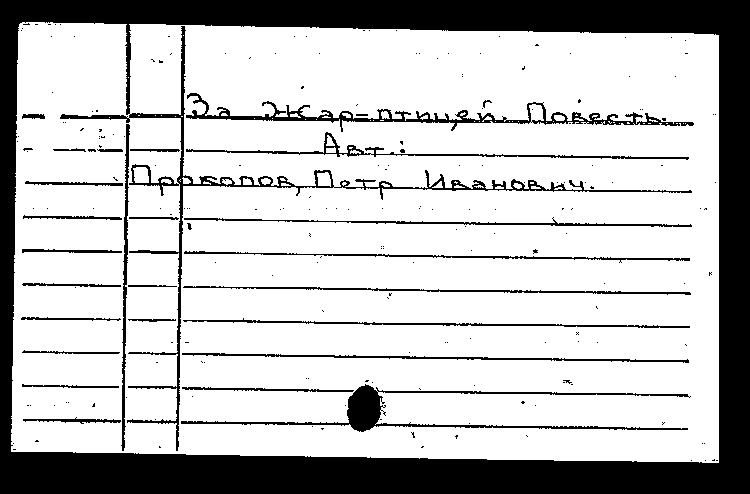 За Жар-птицей. Повесть.
Авт.:
Прокопов, Петр Иванович.